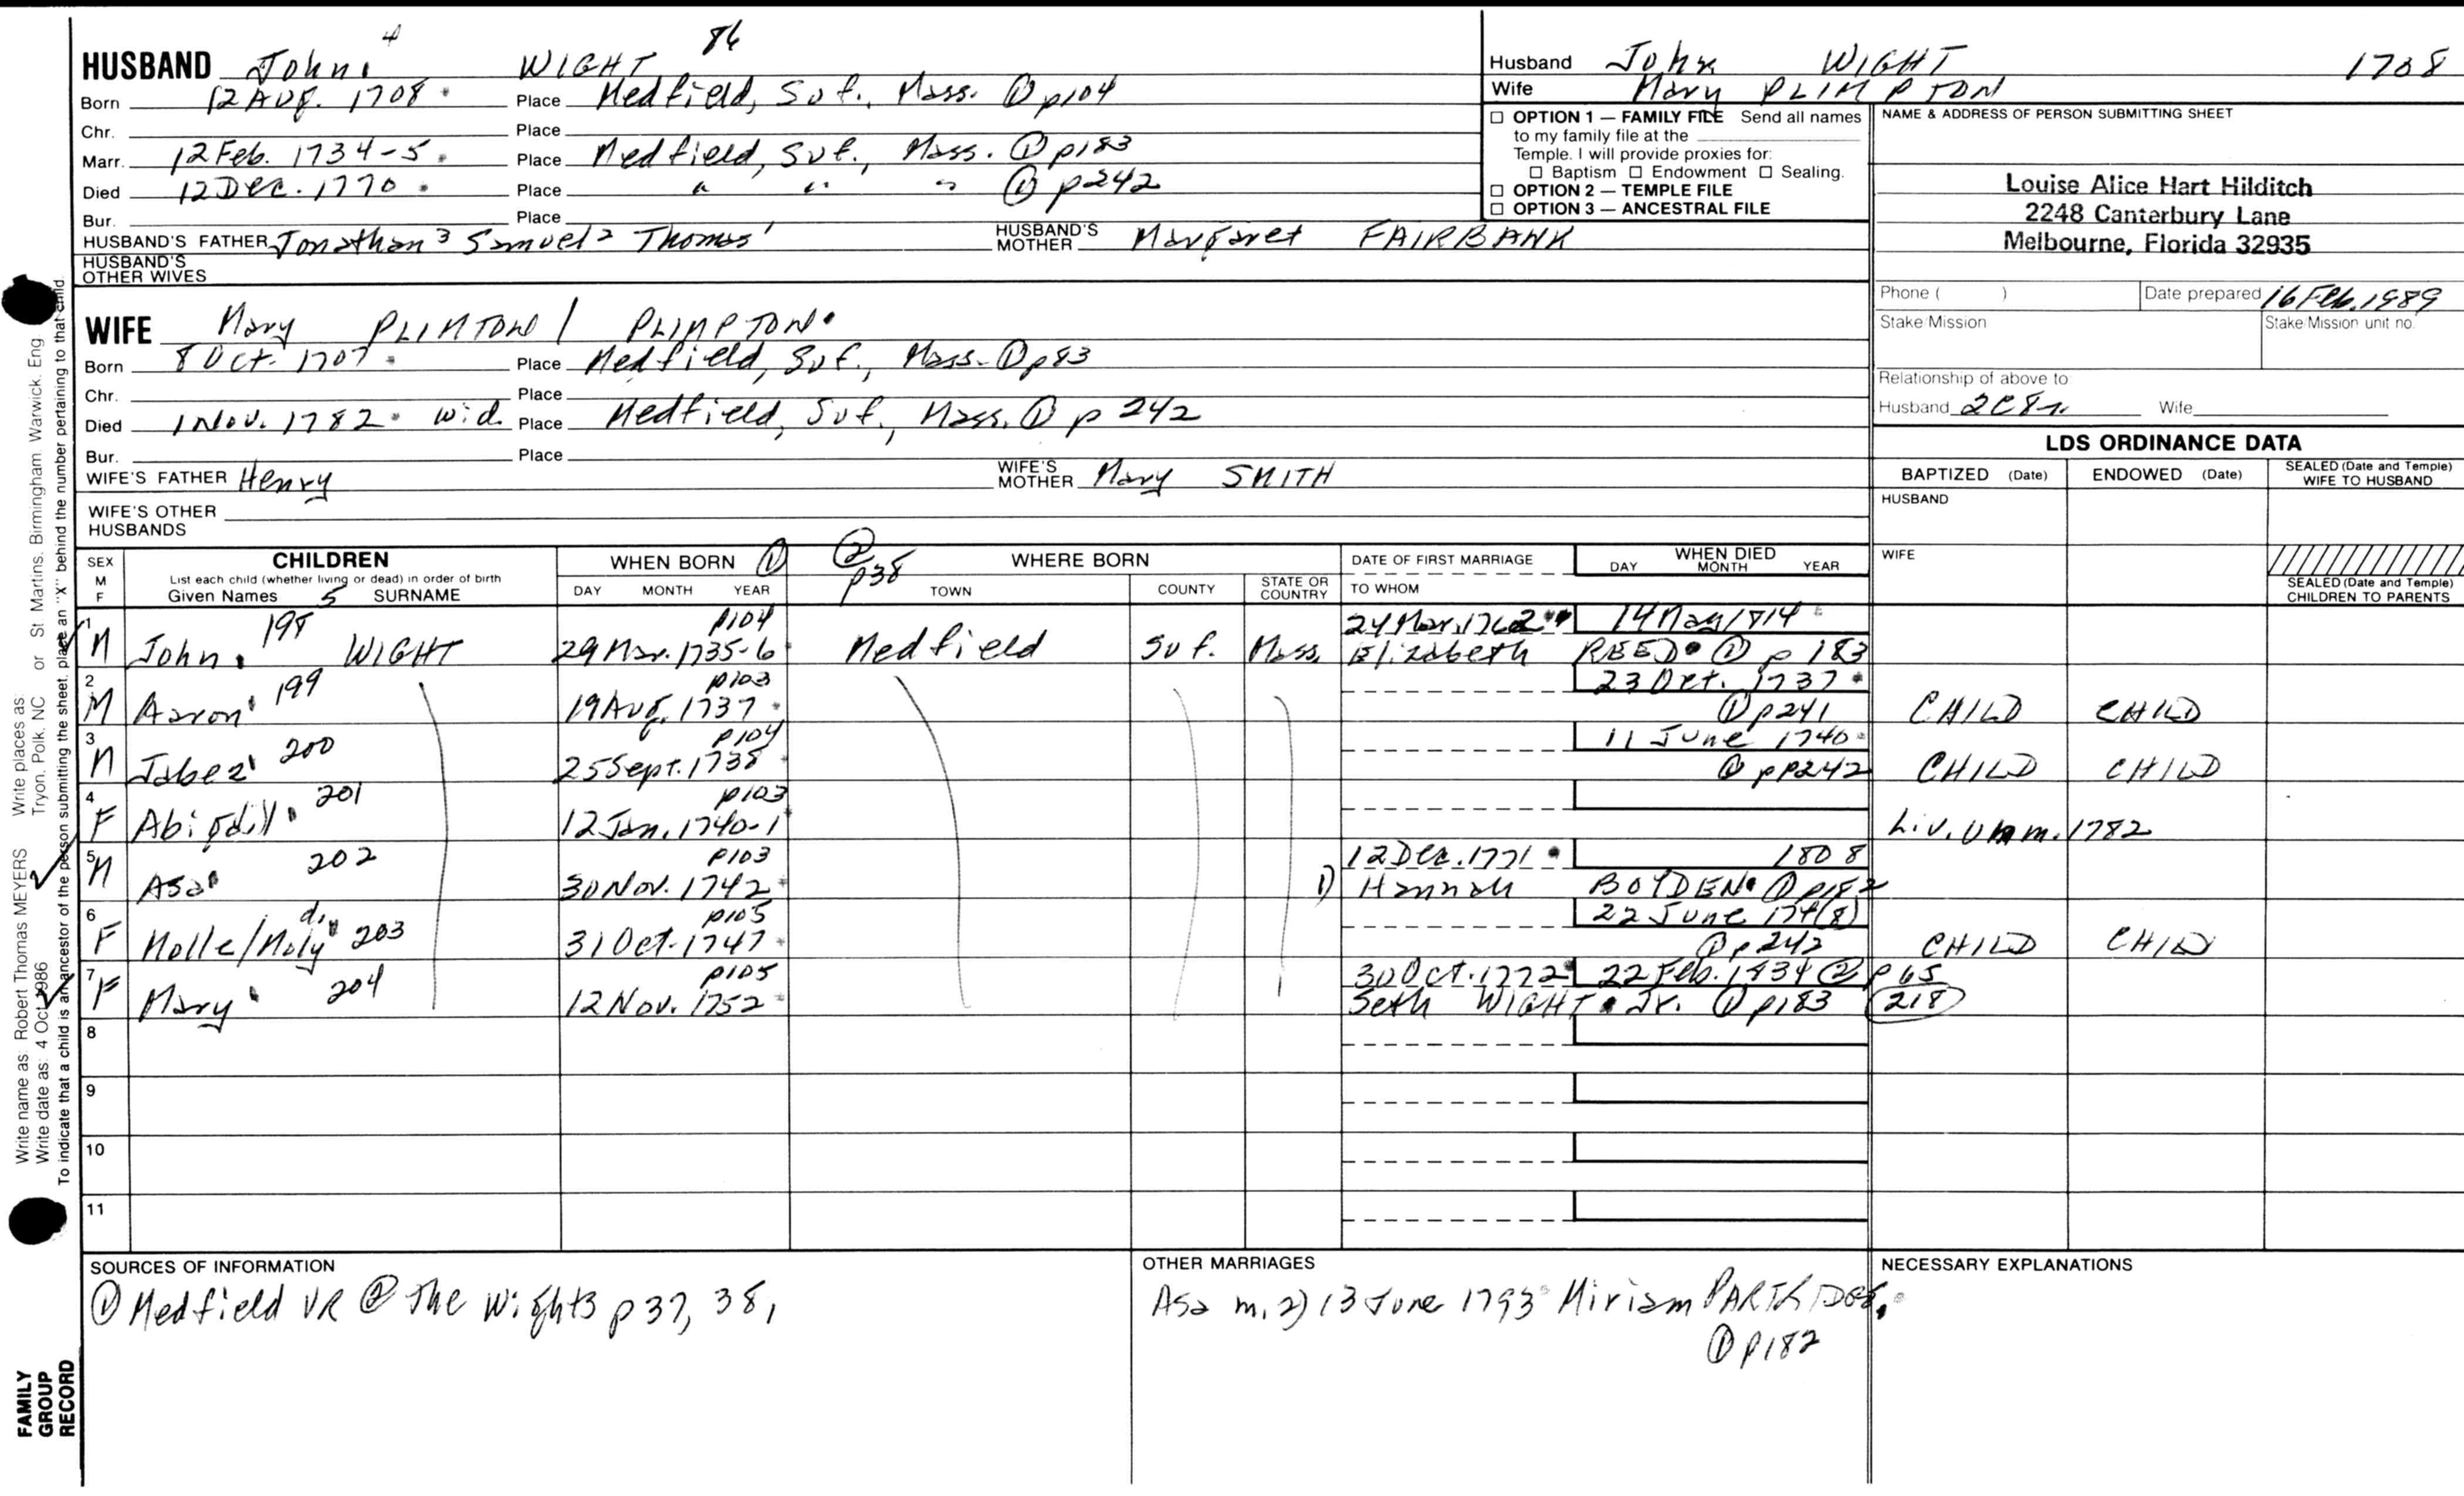 HUSBAND John 4 WIGHT 86
Born 12 AUG. 1708 Place Medfield, Suf., Mass. ① p104
Chr. Place
Marr. 12 Feb. 1734-5 Place Medfield, Suf., Mass. ① p183
Died 12 DEC. 1770 Place " " " ① p242
Bur. Place
HUSBAND'S FATHER Jonathan 3 Samuel 2 Thomas 1 HUSBAND'S MOTHER Margaret FAIRBANK
HUSBAND'S OTHER WIVES
Husband John WIGHT 1708
Wife Mary PLIMPTON
☐ OPTION 1 — FAMILY FILE Send all names
to my family file at the
Temple. I will provide proxies for:
☐ Baptism ☐ Endowment ☐ Sealing.
☐ OPTION 2 — TEMPLE FILE
☐ OPTION 3 — ANCESTRAL FILE
NAME & ADDRESS OF PERSON SUBMITTING SHEET
Louise Alice Hart Hilditch
2248 Canterbury Lane
Melbourne, Florida 32935
Phone ( ) Date prepared 16 Feb. 1989
Stake/Mission Stake/Mission unit no.
Relationship of above to
Husband 2C8r. Wife
WIFE Mary PLIMTON / PLIMPTON
Born 8 Oct. 1707 Place Medfield, Suf., Mass. ① p83
Chr. Place
Died 1 Nov. 1782 wid. Place Medfield, Suf., Mass. ① p 242
Bur. Place
WIFE'S FATHER Henry WIFE'S MOTHER Mary SMITH
WIFE'S OTHER HUSBANDS
LDS ORDINANCE DATA
BAPTIZED (Date) ENDOWED (Date) SEALED (Date and Temple) WIFE TO HUSBAND
HUSBAND
WIFE
SEALED (Date and Temple) CHILDREN TO PARENTS
SEX M F CHILDREN WHEN BORN ① ② p38 WHERE BORN DATE OF FIRST MARRIAGE WHEN DIED
List each child (whether living or dead) in order of birth
Given Names 5 SURNAME DAY MONTH YEAR TOWN COUNTY STATE OR COUNTRY TO WHOM DAY MONTH YEAR
1 198 p104 24 Mar. 1762 14 May 1814
M John WIGHT 29 Mar. 1735-6 Medfield Suf. Mass. Elizabeth REED ① p 183
2 199 p103 23 Oct. 1737
M Aaron 19 Aug. 1737 ① p241 CHILD CHILD
3 200 p104 11 June 1740
M Jabez 25 Sept. 1738 ① pp242 CHILD CHILD
4 201 p103
F Abigaill 12 Jan. 1740-1 Liv. Unm. 1782
5 202 p103 12 Dec. 1771 1808
M Asa 30 Nov. 1742 1) Hannah BOYDEN ① p182
6 p105 22 June 174(8)
F Molle/Moly 203 31 Oct. 1747 ① p 242 CHILD CHILD
7 204 p105 30 Oct. 1772 22 Feb. 1834 ② p 65
F Mary 12 Nov. 1752 Seth WIGHT Jr. ① p183 218
8
9
10
11
SOURCES OF INFORMATION
① Medfield VR ② The Wights p 37, 38,
OTHER MARRIAGES
Asa m. 2) 13 June 1793 Miriam PARTRIDGE,
① p182
NECESSARY EXPLANATIONS
Write name as Robert Thomas MEYERS Write places as: Tryon, Polk, NC or St Martins, Birmingham Warwick, Eng
Write date as: 4 Oct 1986
To indicate that a child is an ancestor of the person submitting the sheet, place an "X" behind the number pertaining to that child.
FAMILY
GROUP
RECORD